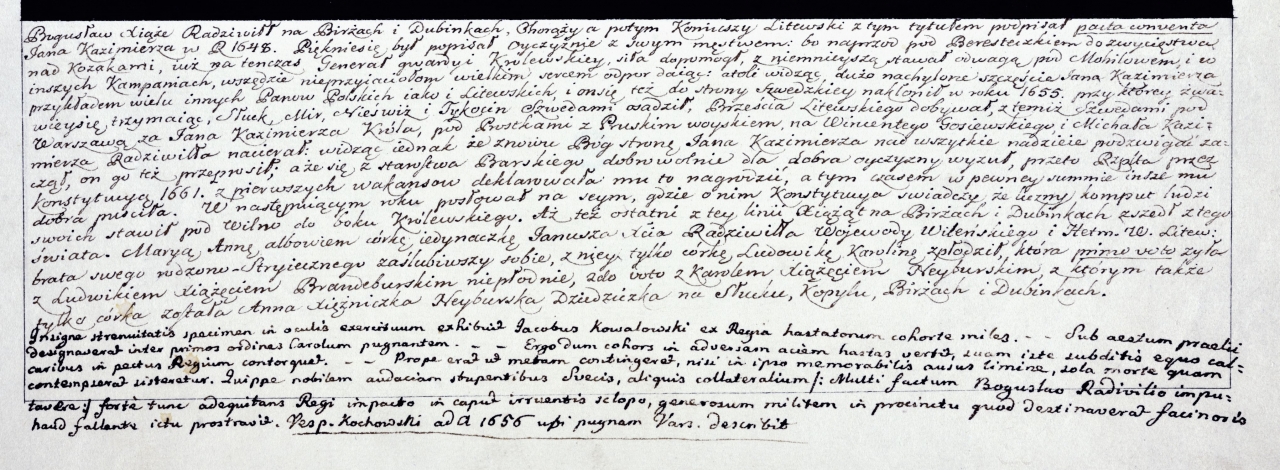 Bogusław Xiąże Radziwiłł na Birżach i Dubinkach, Chorąży a potym Koniuszy Litewski z tym tytułem podpisał pacta conventa
Jana Kazimierza w R 1648. Pięknie się był popisał Oyczyznie z swym męstwem: bo naprzod pod Beresteczkiem do zwycięstwa
nad Kozakami, iuż na tenczas Generał gwardyi Krolewskiey, siła dopomogł, z niemnieyszą stawał odwagą pod Mohilowem, i w
inszych Kampaniach, wszędzie nieprzyiaciołom wielkim sercem odpor daiąc: atoli widząc, dużo nachylone szczęście Jana Kazimierza
przykładem wielu innych Panow Polskich iako i Litewskich i on się też do strony Szwedzkiey nakłonił w roku 1655. przy ktorey żwa-
wiey się trzymaiąc, Słuck, Mir, Nieswiż i Tykocin Szwedami osadził, Brześcia Litewskiego dobywał, z temiż Szwedami pod
Warszawą za Jana Kazimierza Krola, pod Prostkami z Pruskim woyskiem, na Wincentego Gosiewskiego, i Michała Kazi-
mierza Radziwiłła nacierał: widząc iednak że znowu Bog stronę Jana Kazimierza nad wszytkie nadzieie podzwigać za-
czął, on go też przeprosił; a że się z starostwa Barskiego dobrowolnie dla dobra oyczyzny wyzuł, przeto Rzpłta przez
Konstytucyą 1661. z pierwszych wakansow deklarowała mu to nagrodzić, a tym czasem w pewney summie insze mu
dobra puściła. W następuiącym roku posłował na seym, gdzie o nim Konstytucya swiadczy, że liczny komput ludzi
swoich stawił pod Wilno do boku Krolewskiego. Aż też ostatni z tey linii Xiążąt na Birżach i Dubinkach zszedł z tego
świata. Maryą Annę albowiem corkę iedynaczkę Janusza Xcia Radziwiłła Woiewody Wileńskiego i Hetm. W. Litew:
brata swego rodzono-Stryiecznego zaślubiwszy sobie, z niey tylko corkę Ludowikę Karolinę zpłodził, ktora primo voto żyła
z Ludwikiem Xiążęciem Brandeburskim niepłodnie, 2do voto z Karolem Xiążęciem Neyburskim, z ktorym także
tylko corka została Anna Xiężniczka Neyburska Dziedziczka na Słucku, Kopylu, Birżach i Dubinkach.
Insigne strenuitatis specimen in oculis exercituum exhibuit Jacobus Kowalowski ex Regia hastatorum cohorte miles. - - Sub aestum praelii
designaverat inter primos ordines Carolum pugnantem. - - Ergo dum cohors in adversam aciem hastas vertit, suam iste subditis equo cal-
caribus in pectus Regium contorquet. - - Prope erat ut metam contingeret, nisi in ipso memorabilis ausus limine, sola morte quam
contempserat sisteretur. Quippe nobilem audaciam stupentibus Svecis, aliquis collateralium /: Multi factum Boguslao Radivilio impu-
tavere :/ forte tunc adequitans Regi impacto in caput irruentis sclopo, generosum militem in procinctu quod destinaverat facinoris
haud fallente ictu prostravit. Vesp. Kochowski ad A 1656 ubi pugnam Vars. describit